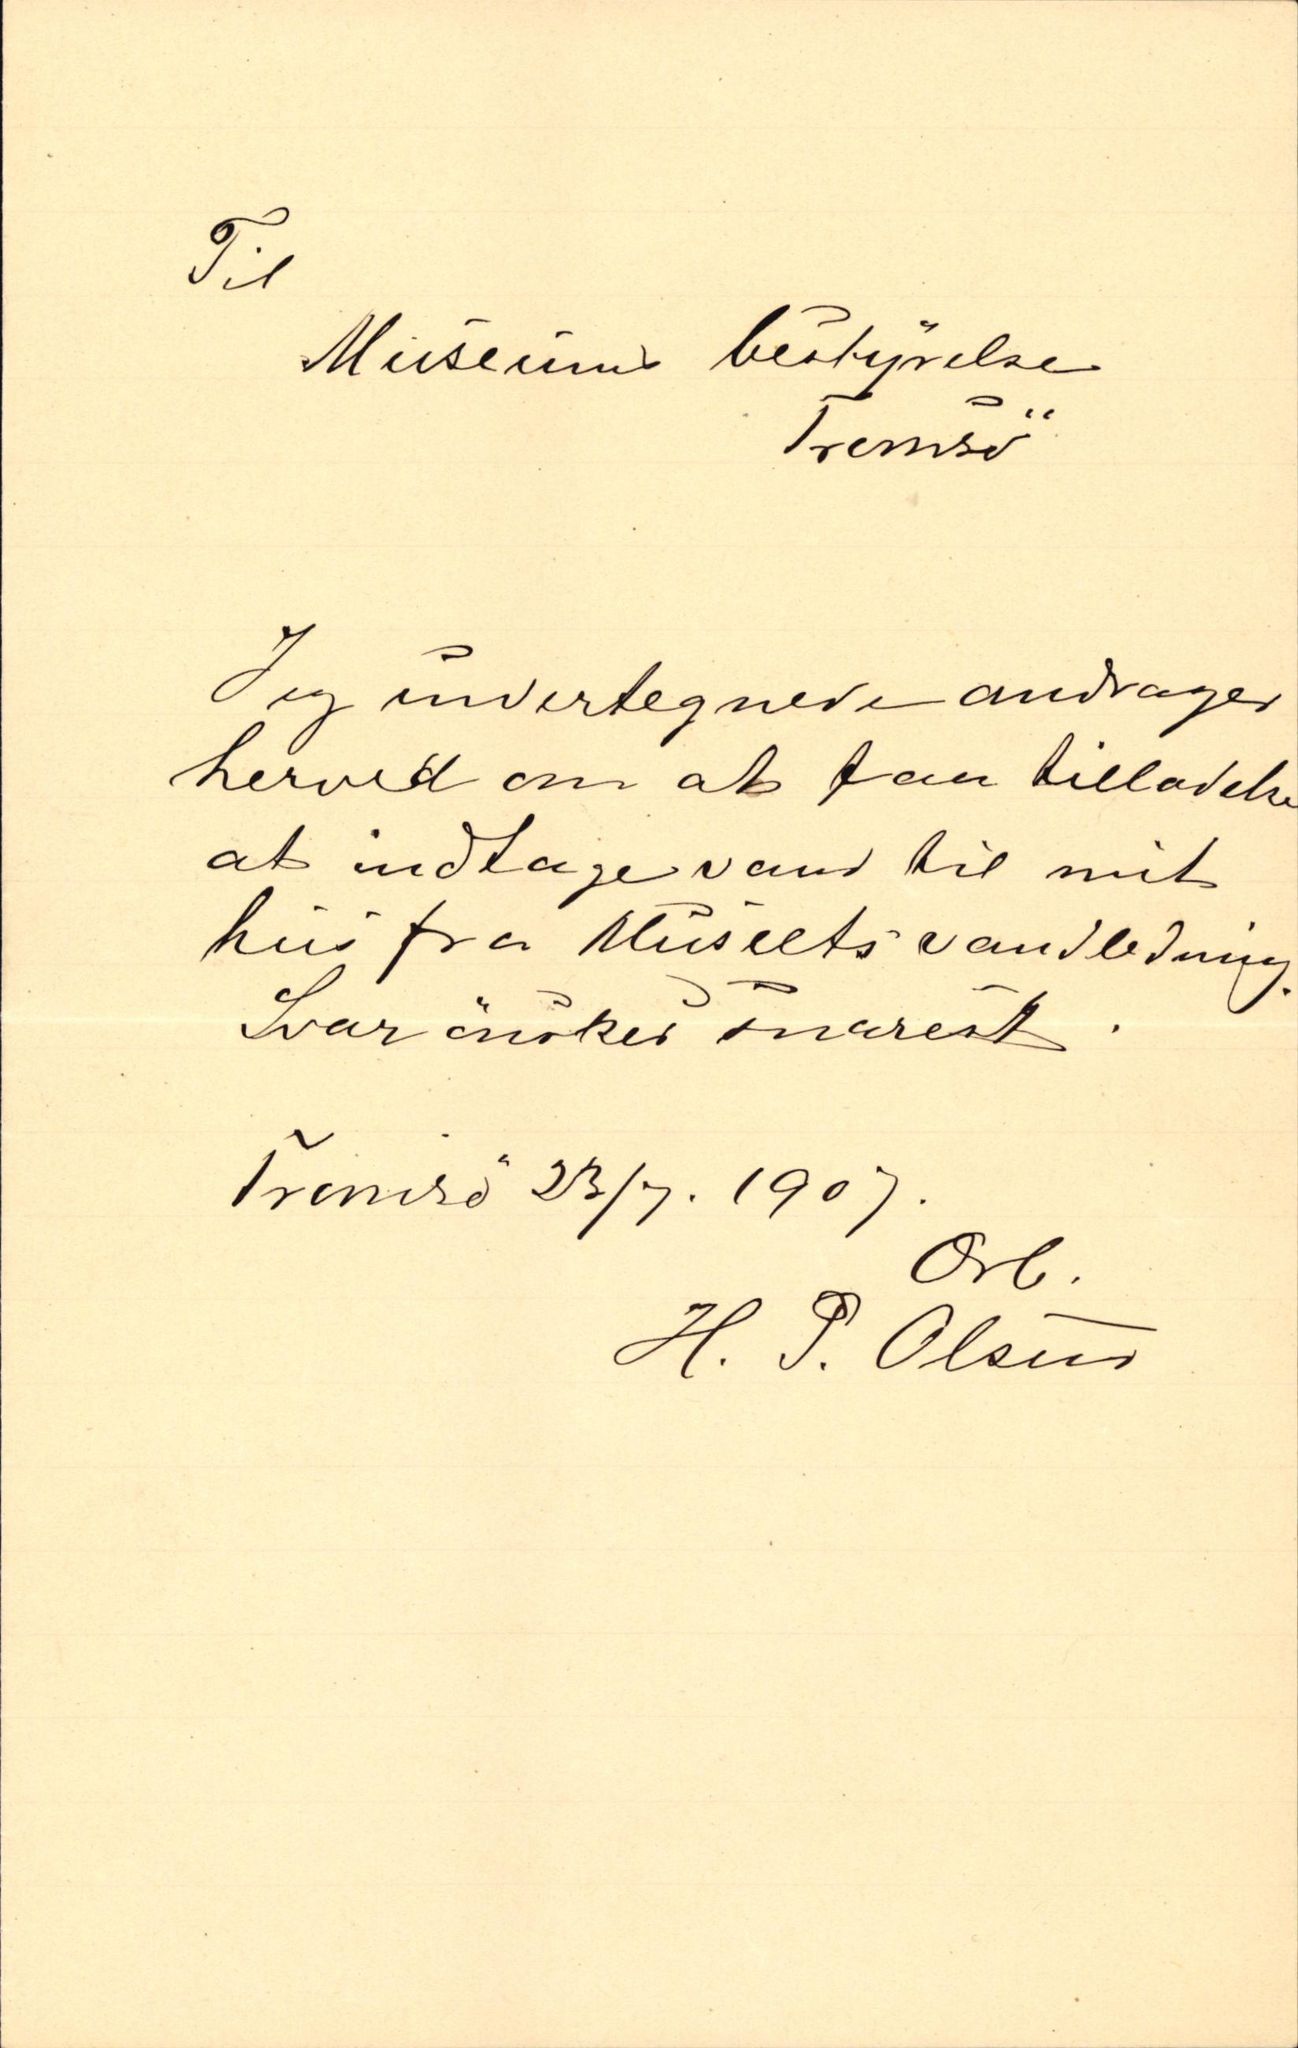 Til
Museums bestyrelse
Tromsö
Jeg undertegnede andrager
herved om at faa tilladelse
at indtage vand til mit
hus fra Museets vandledning.
Svar önskes snarest.
Tromsö 23/7. 1907.
Ærb.
H. P. Olsen